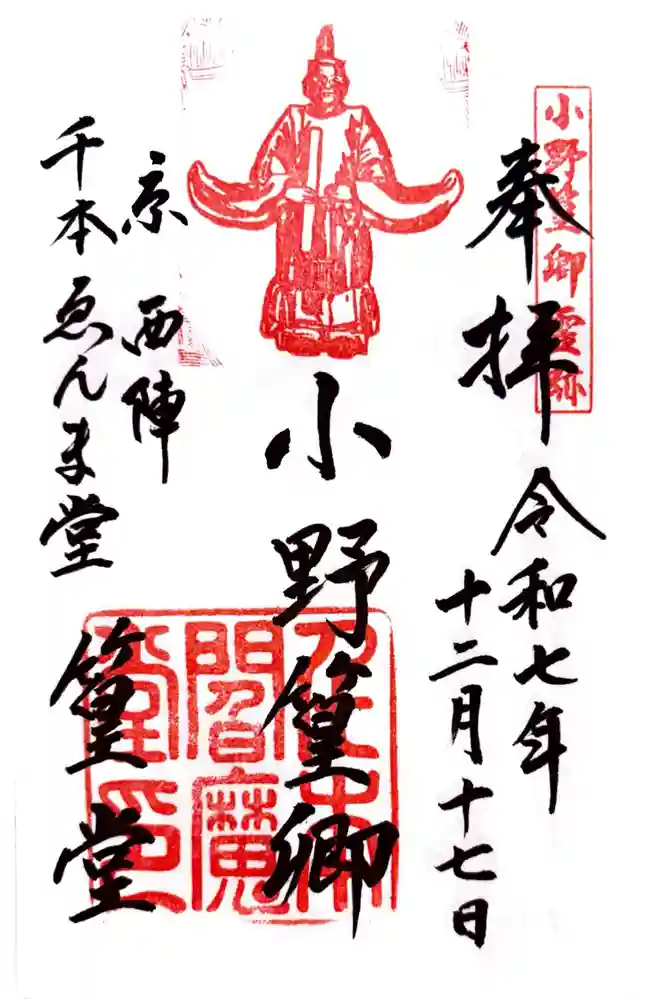 小野篁卿
奉拝
令和七年
十二月十七日
小野篁卿
閻魔
堂印
京 西陣
千本ゑんま堂
篁堂